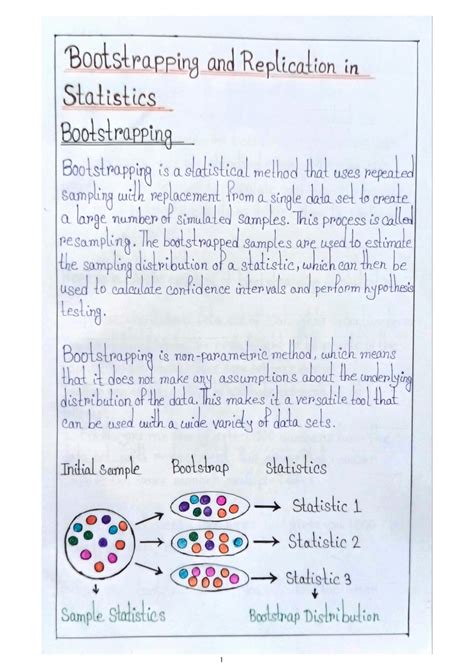 Bootstrapping and Replication in
Statistics
Bootstrapping
Bootstrapping is a statistical method that uses repeated
sampling with replacement from a single data set to create
a large number of simulated samples. This process is called
resampling. The bootstrapped samples are used to estimate
the sampling distribution of a statistic, which can then be
used to calculate confidence intervals and perform hypothesis
testing.
Bootstrapping is non-parametric method, which means
that it does not make any assumptions about the underlying
distribution of the data. This makes it a versatile tool that
can be used with a wide variety of data sets.
Initial Sample Bootstrap Statistics
Statistic 1
Statistic 2
Statistic 3
Sample Statistics Bootstrap Distribution
1